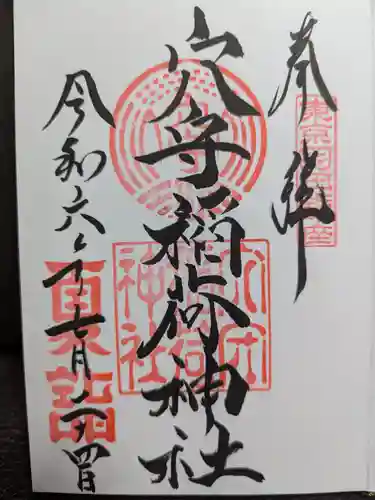 奉拝
東京羽田鎮座
穴守稲荷神社
穴守稲荷神社
令和六年十一月二十四日
夏詣